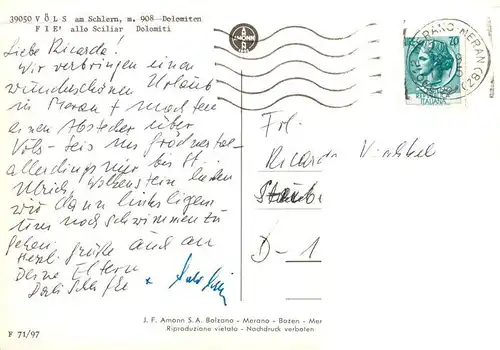 39050 VÖLS am Schlern, m. 908 - Dolomiten
FIE' allo Sciliar Dolomiti
AMONN
MERANO - MERAN (BZ)
70
ITALIANA
Liebe Ricarda!
Wir verbringen einen
wunderschönen Urlaub
in Meran + machten
einen Abstecher über
Völs - Seis ins Grödnertal
allerdings nur bis St.
Ulrich, Wolkenstein ließen
wir dann links liegen
um noch schwimmen zu
gehen.
Herzl. Grüße auch an
Deine Eltern
Frl.
Ricarda
D-1
J. F. Amonn S.A. Bolzano - Merano - Bozen - Mer
Riproduzione vietata - Nachdruck verboten
F 71/97